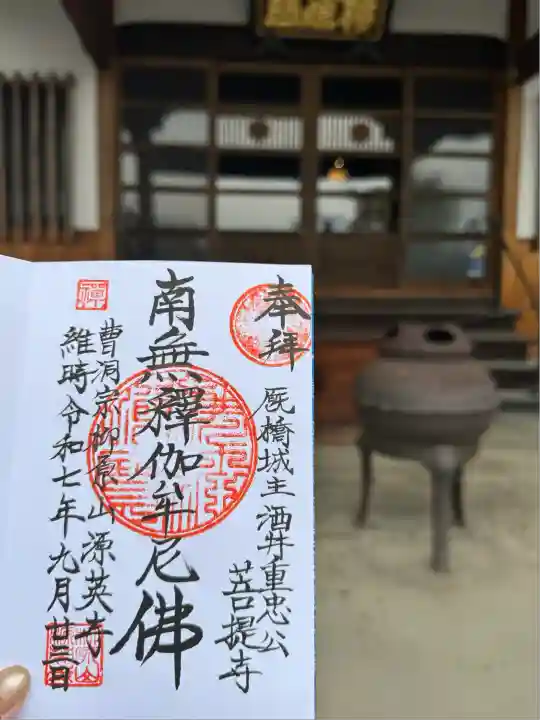 奉拜
厩橋城主酒井重忠公
菩提寺
南無釋伽牟尼佛
禅
曹洞宗柳原山源英寺
維時令和七年九月廿三日